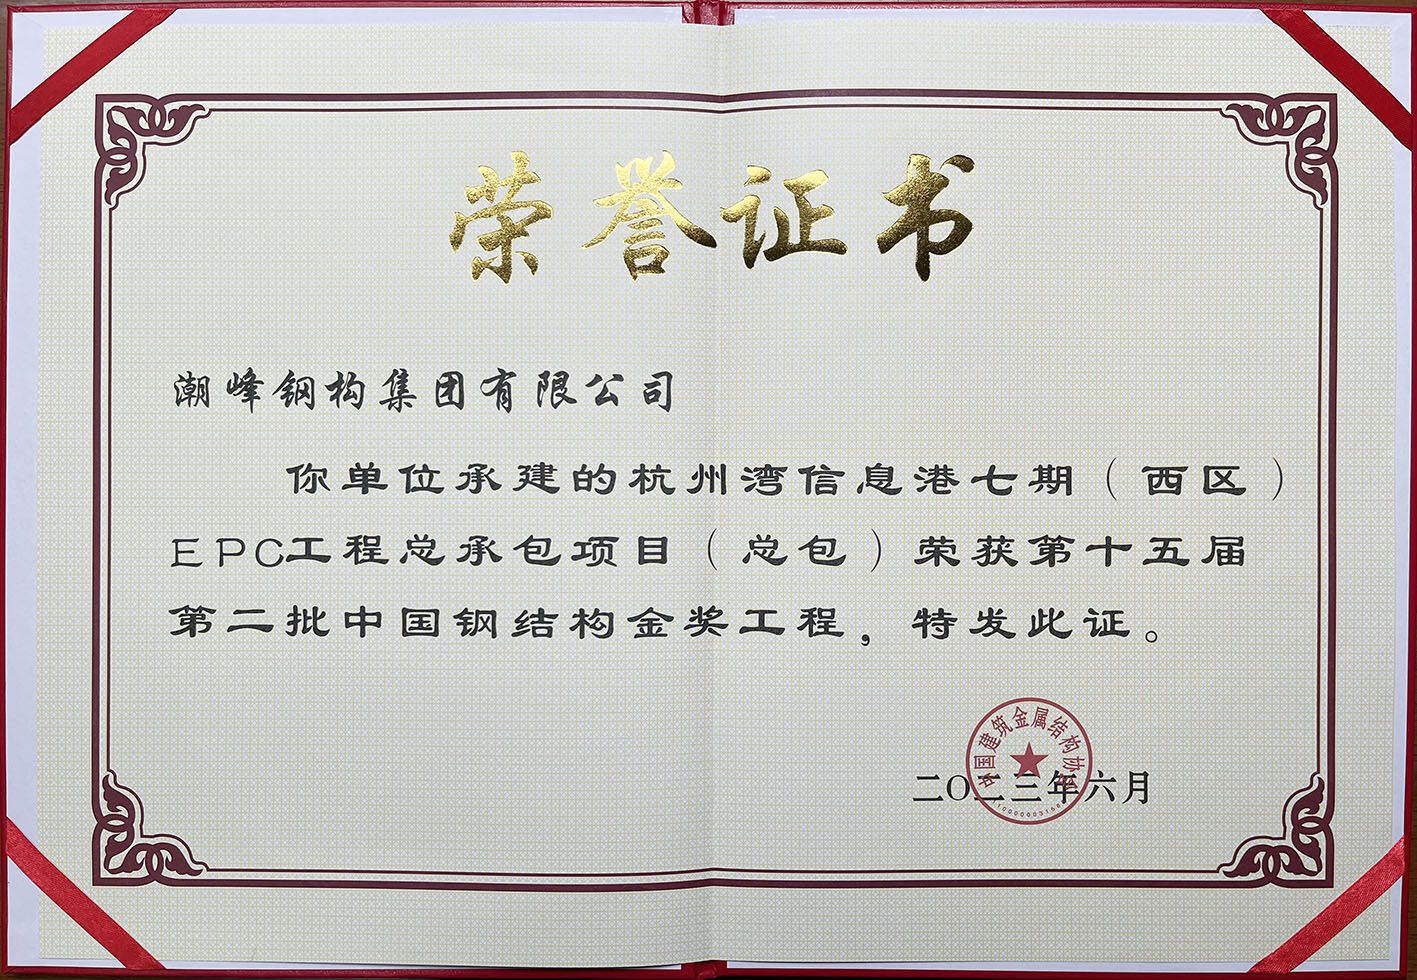 荣誉证书
潮峰钢构集团有限公司
你单位承建的杭州湾信息港七期（西区）
EPC工程总承包项目（总包）荣获第十五届
第二批中国钢结构金奖工程，特发此证。
中国建筑金属结构协会
二〇二三年六月